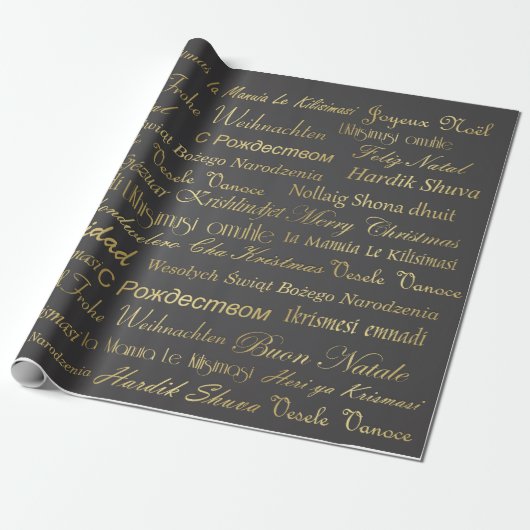 mas la Manuia Le Kilisimasi Joyeux Noël
Frohe Weihnachten Ikhisimusi omuhle
С Рождеством Feliz Natal
Świąt Bożego Narodzenia Hardik Shuva
Vesele Vanoce Nollaig Shona dhuit
Krishlindjet Merry Christmas
Ikhisimusi omuhle la Manuia Le Kilisimasi
Cha Kristmas Vesele Vanoce
dad Wesołych Świąt Bożego Narodzenia
С Рождеством Ikrismesi emnadi
Frohe Weihnachten Buon Natale
la Manuia Le Kilisimasi Heri ya Krismasi
Narodzenia Hardik Shuva Vesele Vanoce